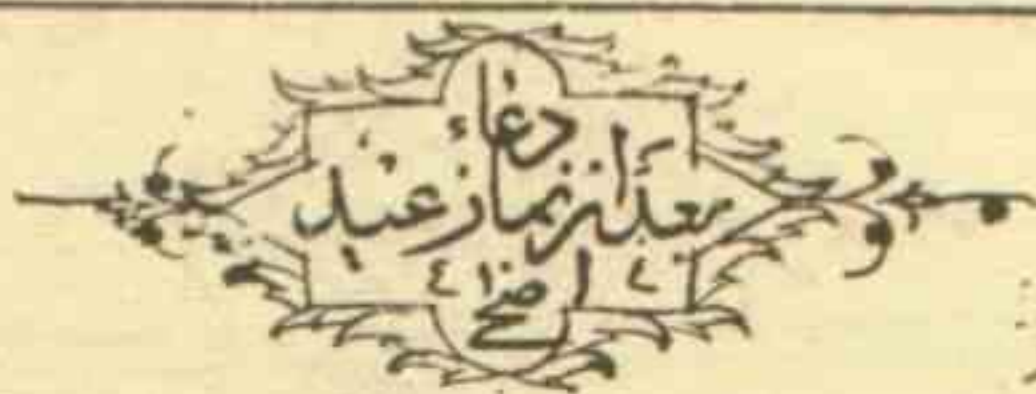 دعاء
بعد از نماز عید
اضحی